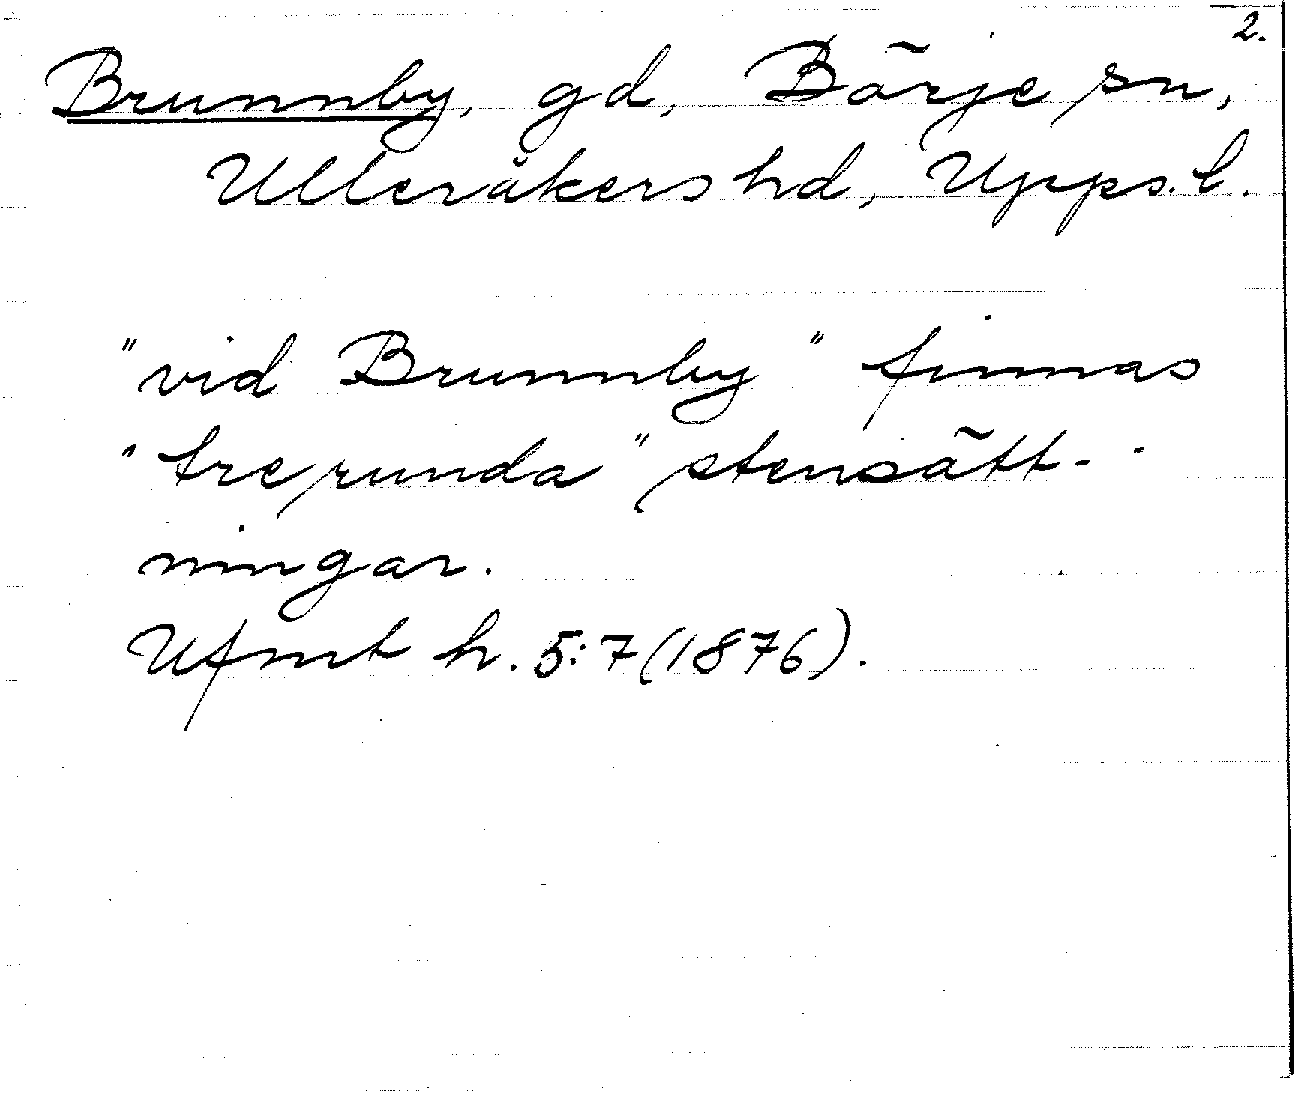 2.
Brunnby, gd, Börje sn,
Ulleråkers hd, Upps. l.
"vid Brunnby" finnas
"tre runda" stensätt-
ningar.
Ufmt h. 5:7 (1876).